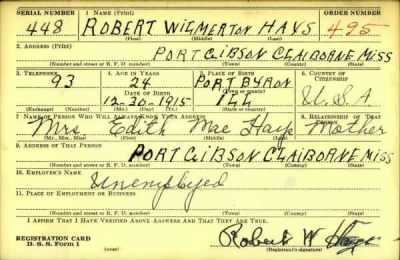 SERIAL NUMBER 1. NAME (Print) ORDER NUMBER
448 ROBERT WILMERTON HAYS 495
(First) (Middle) (Last)
2. ADDRESS (Print)
PORT GIBSON CLAIBORNE MISS
(Number and street or R. F. D. number) (Town) (County) (State)
3. TELEPHONE 4. AGE IN YEARS 5. PLACE OF BIRTH 6. COUNTRY OF CITIZENSHIP
93 24 PORT BYRON
DATE OF BIRTH (Town or county)
12-30-1915 ILL U.S.A
(Exchange) (Number) (Mo.) (Day) (Yr.) (State or country)
7. NAME OF PERSON WHO WILL ALWAYS KNOW YOUR ADDRESS 8. RELATIONSHIP OF THAT PERSON
Mrs. Edith Mae Hays Mother
(Mr., Mrs., Miss) (First) (Middle) (Last)
9. ADDRESS OF THAT PERSON
PORT GIBSON CLAIBORNE MISS
(Number and street or R. F. D. number) (Town) (County) (State)
10. EMPLOYER'S NAME
Unemployed
11. PLACE OF EMPLOYMENT OR BUSINESS
(Number and street or R. F. D. number) (Town) (County) (State)
I AFFIRM THAT I HAVE VERIFIED ABOVE ANSWERS AND THAT THEY ARE TRUE.
REGISTRATION CARD
D. S. S. Form 1 Robert W Hays
(Registrant's signature)